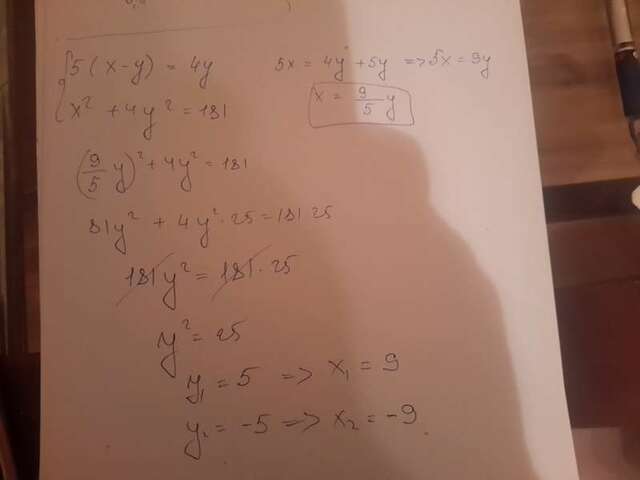 5(x-y) = 4y
5x = 4y + 5y => 5x = 9y
x² + 4y² = 181
x = 9/5 y
(9/5 y)² + 4y² = 181
81y² + 4y²·25 = 181·25
181y² = 181·25
y² = 25
y₁ = 5 => x₁ = 9
y₂ = -5 => x₂ = -9